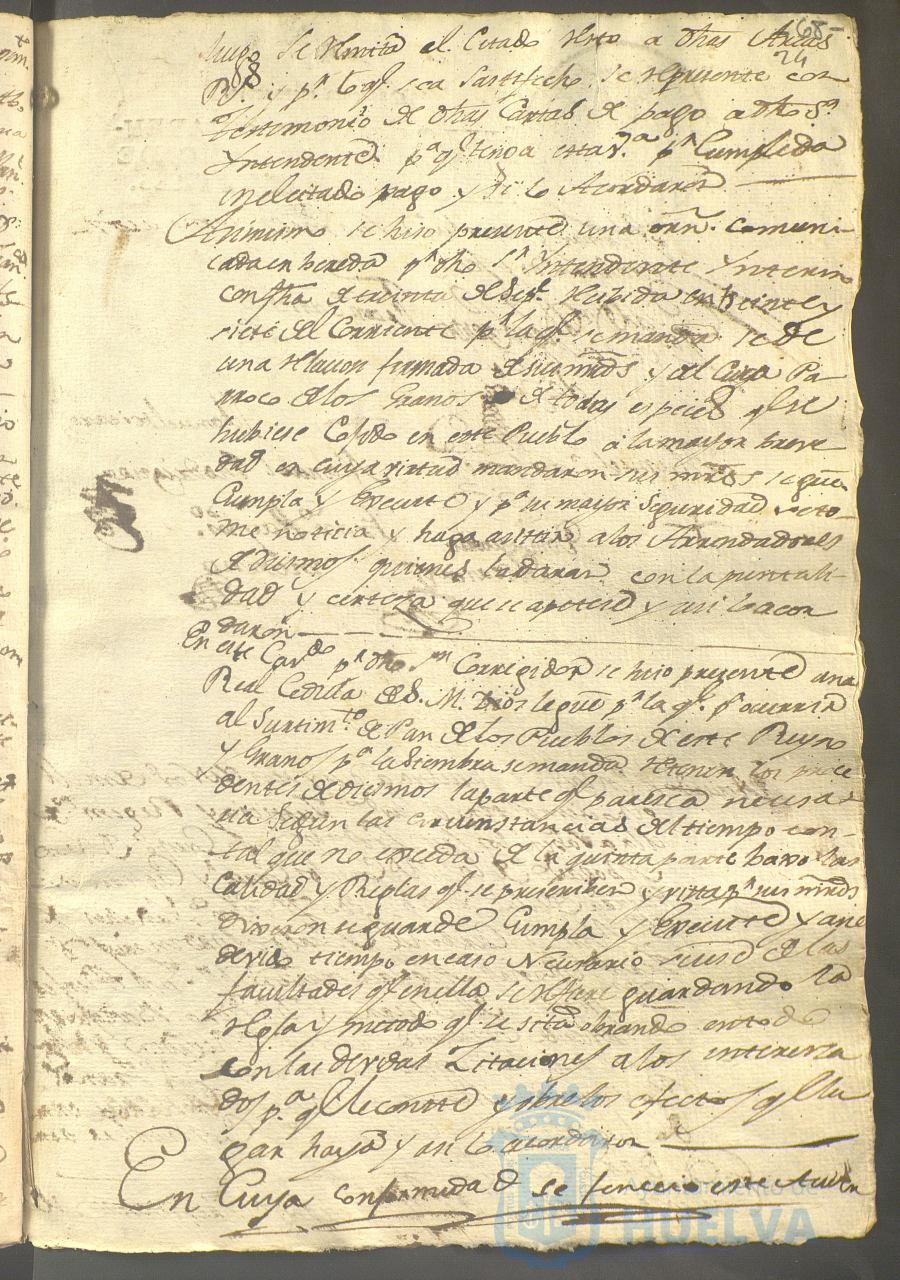 24
luego se remita el Citado resto a dhas Arcas
Rs. y pa. lo qe. sea satisfecho se represente con
testimonio de dhas Cartas de pago a dho Sr.
Intendente pa. qe. tenga esta va. pr. Cumplida
inelcitado pago, y asi lo Acordaron
Asimismo se hiso presente una orn. comuni-
cada en bereda pr. dho Sr. Intendente Ynterino
con fha de treinta de Sepe. Recibida en beinte y
siete del Corriente pr. la qe. se manda se de
una relacion firmada de sus mrds y del Cura Pa-
rroco de los Granos de todas especies qe. se
hubiese Cosido en este Pueblo a la mayor breve
dad en cuya virtud mandaron sus mrds se gue.
Cumpla y Execute y pa. su mayor seguridad se to-
me noticia y haga asistir a los Arrendadores
de diesmos quienes la daran con la puntali-
dad y certeza que se apetese y asi lo acor
daron
En este Cavdo. pr. dho Sr. Corregidor se hiso presente una
Real Cedula de S. M. Dios le gue. pr. la qe.
al Surtimto. de Pan de los Pueblos de este Reyno
y Granos pa. la Siembra se manda retener los proce
dentes de diesmos la parte qe. paresca necesa-
ria segun las circunstancias del tiempo con-
tal que no exceda de la quinta parte baxo las
Calidad y Reglas qe. se prescriben y vista pr. sus mrds
dixeron se guarde Cumpla y Execute y a su
devido tiempo en caso Necesario se use de las
facultades qe. en ella se refiere guardando la
regla y metodo qe. se sita obrando en todo
con las devidas Zitaciones a los interesa
dos pa. qe. le conste y obre los efectos qe. llu
gar haya y asi lo acordaron
En Cuya conformidad se fenecio este Auto
HUELVA